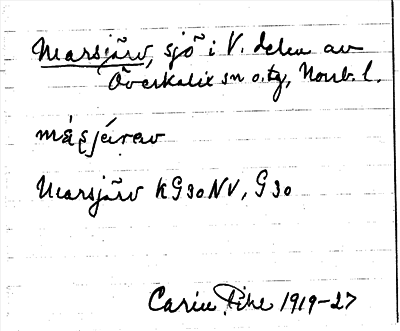 Marsjärv, sjö i V. delen av
Överkalix sn o. tg, Norrb. l.
Marsjärv KG30NV, G30
Carin Pihl 1919-27